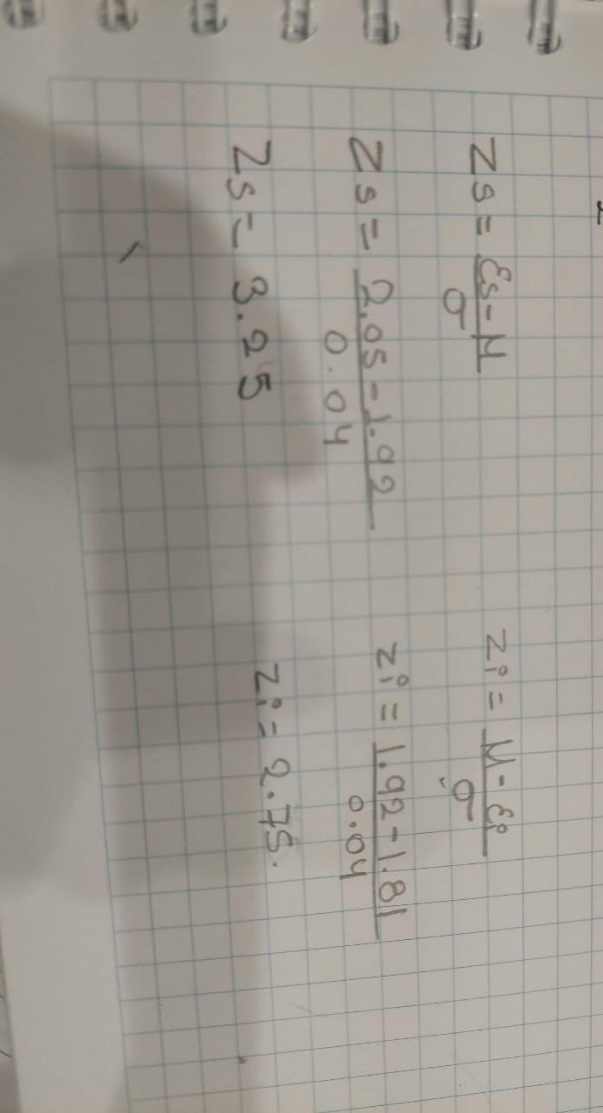 Zs = εs - μ / σ
Zs = 2.05 - 1.92 / 0.04
Zs = 3.25
Zi = μ - εi / σ
Zi = 1.92 - 1.81 / 0.04
Zi = 2.75.